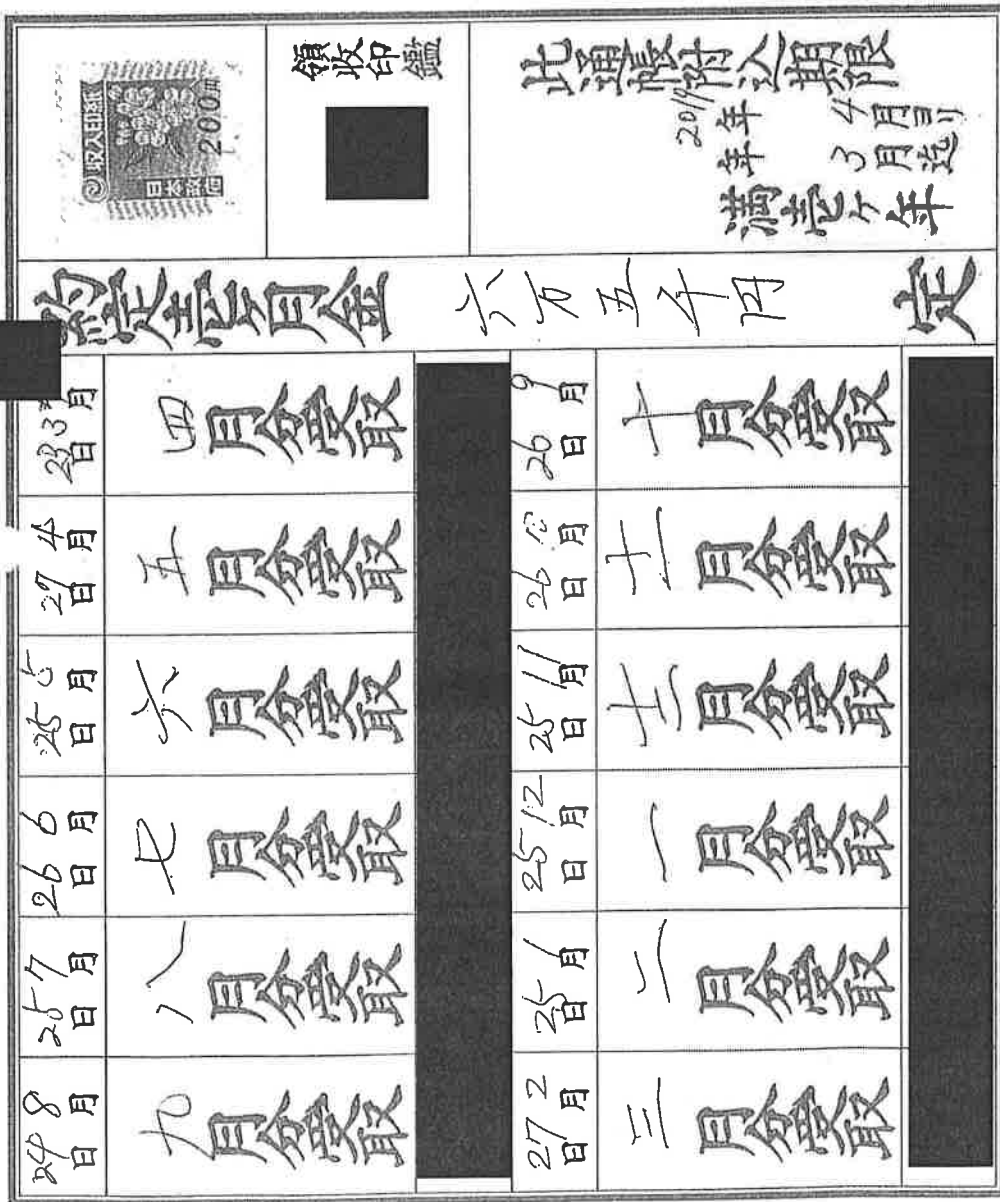 此通帳附込期限
2019年 4月ヨリ
年 3月迄
満壱ケ年
領収印鑑
収入印紙
200円
日本政府
約定壱ヶ月金 六万五千円 定
3月23日 四月分受取
4月27日 五月分受取
5月25日 六月分受取
6月26日 七月分受取
7月25日 八月分受取
8月24日 九月分受取
9月26日 十月分受取
10月26日 十一月分受取
11月25日 十二月分受取
12月25日 一月分受取
1月25日 二月分受取
2月27日 三月分受取